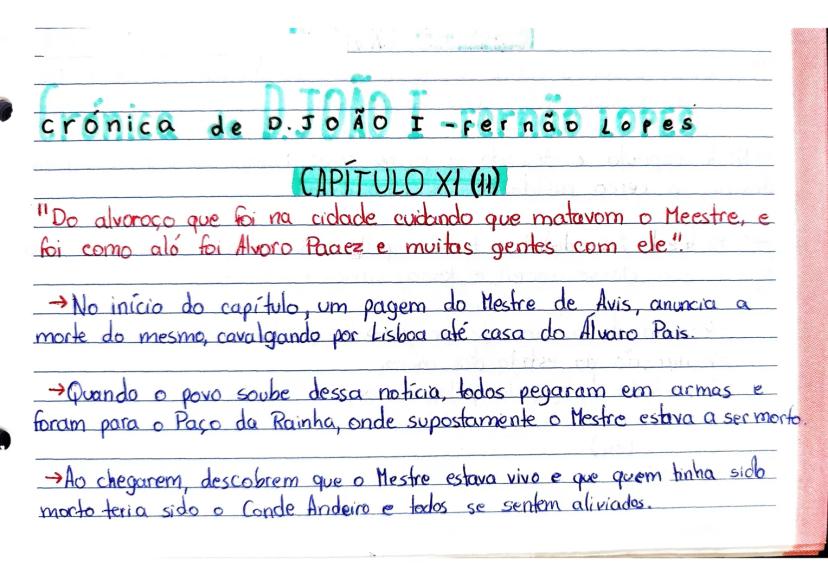 Crónica de D. JOÃO I - Fernão Lopes
CAPÍTULO XI (11)
"Do alvoroço que foi na cidade cuidando que matavom o Meestre, e
foi como aló foi Alvoro Paaez e muitas gentes com ele".
→ No início do capítulo, um pagem do Mestre de Avis, anuncia a
morte do mesmo, cavalgando por Lisboa até casa do Álvaro Pais.
→ Quando o povo soube dessa notícia, todos pegaram em armas e
foram para o Paço da Rainha, onde supostamente o Mestre estava a ser morto.
→ Ao chegarem, descobrem que o Mestre estava vivo e que quem tinha sido
morto teria sido o Conde Andeiro e todos se sentem aliviados.